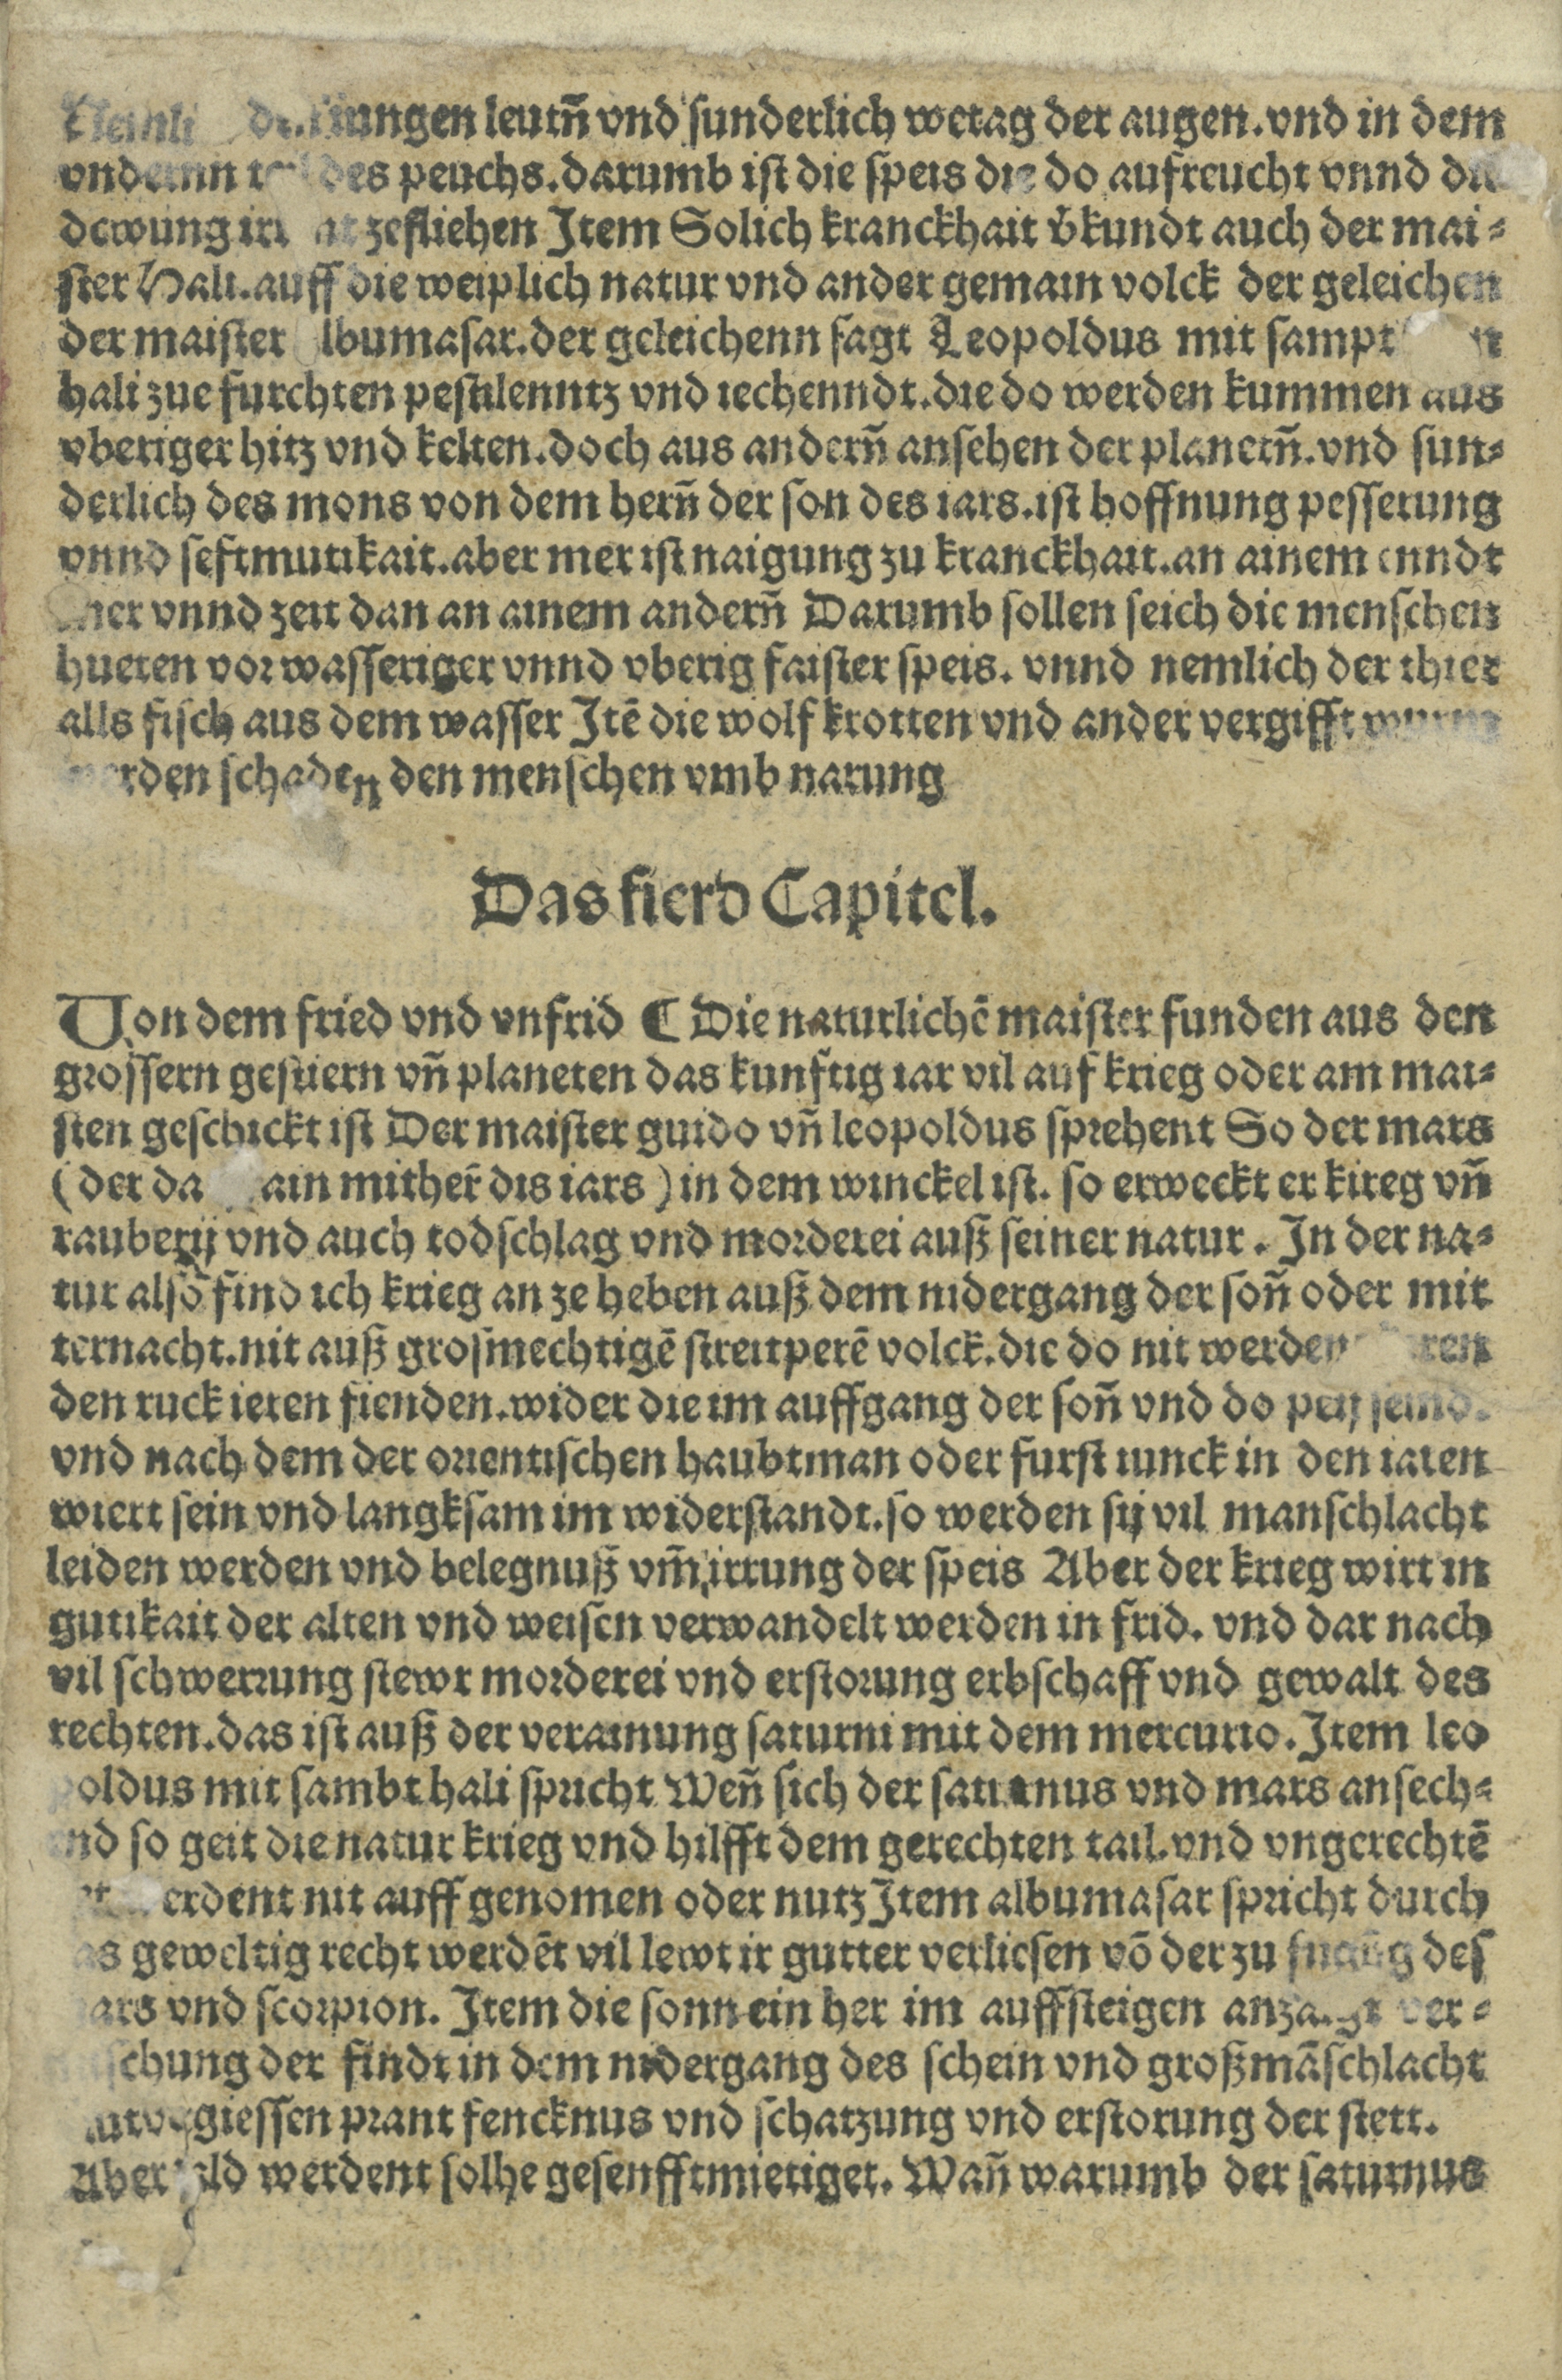 iungen leutn̄ vnd sunderlich wetag der augen. vnd in dem
des peuchs. darumb ist die speis die do aufreucht vnnd
dewung zefliehen Item Solich kranckhait v̄kundt auch der mai⸗
ster Hali. auff die weiplich natur vnd ander gemain volck der geleichen
der maister lbumasar. der geleichenn sagt Leopoldus mit sampt
hali zue furchten pestilenntz vnd iechenndt. die do werden kummen aus
vberiger hitz vnd kelten. doch aus andern̄ ansehen der planetn̄. vnd sun⸗
derlich des mons von dem hern̄ der son des iars. ist hoffnung pesserung
vnnd seftmutikait. aber mer ist naigung zu kranckhait. an ainem enndt
mer vnnd zeit dan an ainem andern̄ Darumb sollen seich die menschen
hueten vor wasseriger vnnd vberig faister speis. vnnd nemlich der thier
alls fisch aus dem wasser Itē die wolf krotten vnd ander vergifft wurm
werden schaden den menschen vmb narung
Das fierd Capitel.
Von dem fried vnd vnfrid ¶ Die naturlichē maister funden aus den
grossern gestiern vn̄ planeten das kunftig iar vil auf krieg oder am mai⸗
sten geschickt ist Der maister guido vn̄ leopoldus sprehent So der mars
(der da ain mither̄ dis iars) in dem winckel ist. so erweckt er kireg vn̄
rauberij vnd auch todschlag vnd morderei auß seiner natur. In der na⸗
tur alsō find ich krieg an ze heben auß dem nidergang der son̄ oder mit
ternacht. nit auß grosmechtigē streitperē volck. die do nit werden
den ruck ieren fienden. wider die im auffgang der son̄ vnd do peij seind.
vnd nach dem der orientischen haubtman oder furst iunck in den iaren
wiert sein vnd langksam im widerstandt. so werden sij vil manschlacht
leiden werden vnd belegnuß vm̄ irrung der speis Aber der krieg wirt in
gutikait der alten vnd weisen verwandelt werden in frid. vnd dar nach
vil schwerrung stewr morderei vnd erstorung erbschaff vnd gewalt des
rechten. das ist auß der verainung saturni mit dem mercurio. Item leo
poldus mit sambt hali spricht Wen̄ sich der saturnus vnd mars ansech⸗
end so geit die natur krieg vnd hilfft dem gerechten tail. vnd vngerechtē
erdent nit auff genomen oder nutz Item albumasar spricht durch
as geweltig recht werdēt vil lewt ir gutter verliesen vō der zu fugūg des
ars vnd scorpion. Item die sonn ein her im auffsteigen anzaigt ver⸗
schung der findt in dem nidergang des schein vnd großmāschlacht
giessen prant fencknus vnd schatzung vnd erstorung der stett.
Aber werdent solhe gesenfftmietiget. Wan̄ warumb der saturnus